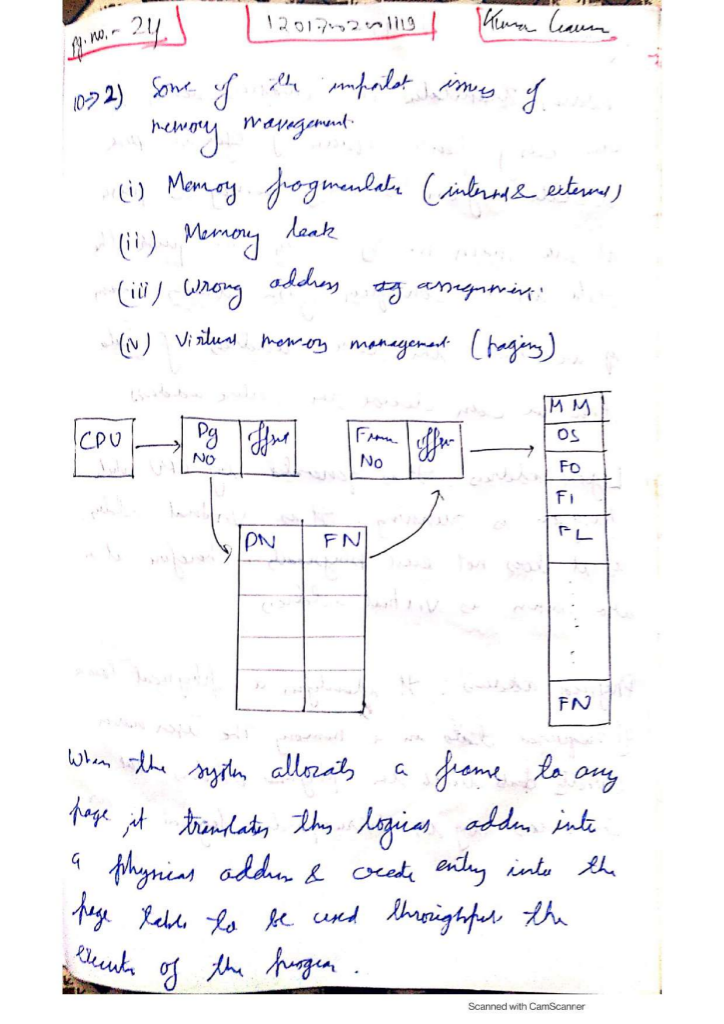 pg. no. - 24
Kumar
10=>2) Some of the important issues of
memory management
(i) Memory fragmentation (internal & external)
(ii) Memory leak
(iii) Wrong address assignment.
(iv) Virtual memory management (paging)
CPU
Pg offset
NO
Frame offset
No
MM
OS
F0
F1
FL
PN FN
FN
When the system allocates a frame to any
page, it translates this logical address into
a physical address & create entry into the
page table to be used throughout the
execution of the program.
Scanned with CamScanner